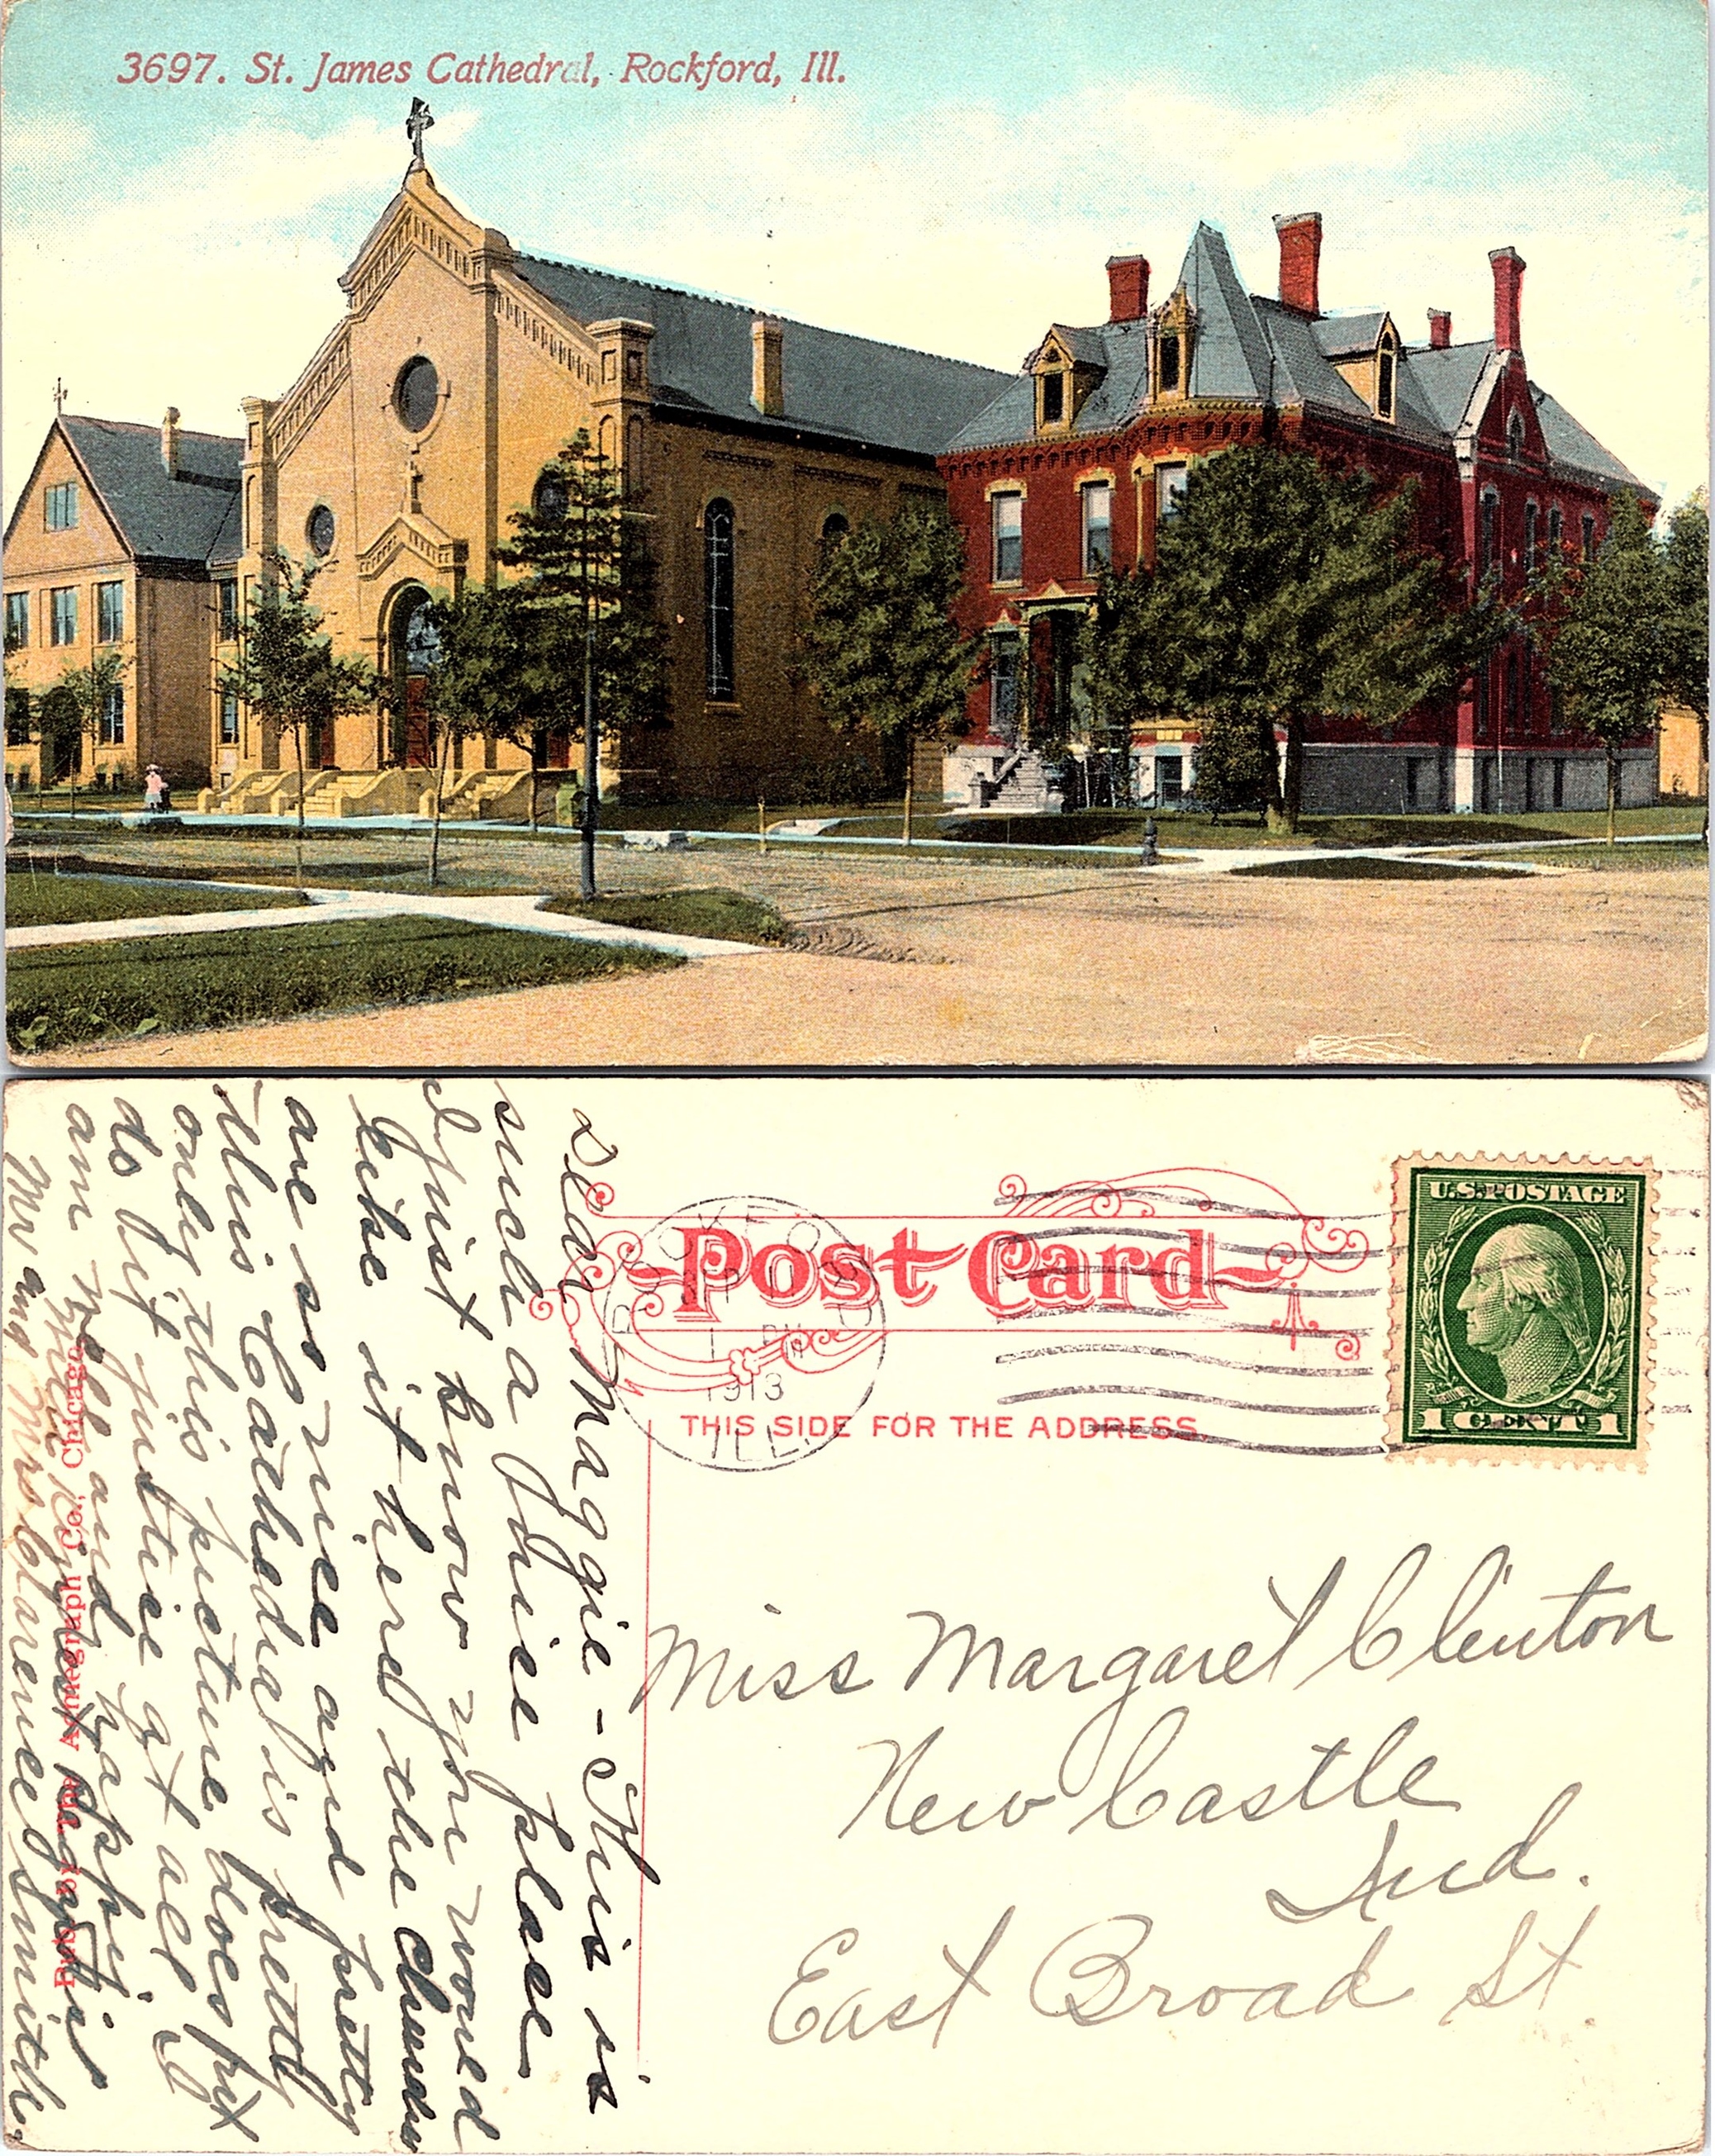 3697. St. James Cathedral, Rockford, Ill.
Post Card
ROCKFORD
1 PM
1913
ILL.
THIS SIDE FOR THE ADDRESS.
U.S. POSTAGE
1 CENT 1
Miss Margaret Clinton
New Castle
Ind.
East Broad St.
Dear Maggie - This is
such a nice place
I just know you would
like it here the churches
are so nice and pretty
this Cathedral is pretty
only this picture does not
do it justice at all I
am well and happy.
with
Mr and Mrs Clarence Gsmith.
Pub. by The Acmegraph Co., Chicago.